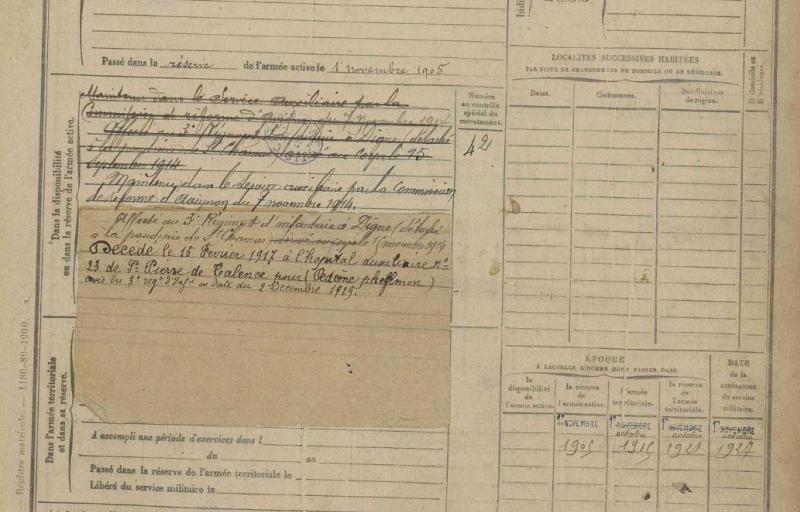 Indi
Passé dans la réserve de l'armée active le 1 novembre 1905
Dans la disponibilité
ou dans la réserve de l'armée active.
Maintenu dans le Service auxiliaire par la
Commission de réforme d' du 7 Novembre 1914
Affecté au 3e Régiment d'Infanterie à Digne (détaché
à la poudrerie de St Chamas) arrivé au Corps le 15
septembre 1914
Maintenu dans le service auxiliaire par la Commission
de réforme d'Avignon du 7 novembre 1914.
Affecté au 3e Régiment d'infanterie à Digne (détaché
à la poudrerie de St Chamas novembre 1914
Décédé le 15 Fevrier 1917 à l'hopital auxiliaire no
23 de St Pierre de Talence pour (Oedème phlegmon)
avis du 3e regt d'Infie en date du 2 Decembre 1919.
Numéro
au contrôle
spécial du
recrutement.
42
LOCALITÉS SUCCESSIVES HABITÉES
PAR SUITE DE CHANGEMENTS DE DOMICILE OU DE RÉSIDENCE.
Dates.
Communes.
Subdivisions
de région.
D domicile ou
R résidence.
ÉPOQUE
À LAQUELLE L'HOMME DOIT PASSER DANS
la
disponibilité
de
l'armée active.
la réserve
de
l'armée active.
l'armée
territoriale.
la réserve
de
l'armée
territoriale.
DATE
de la
LIBÉRATION
du service
militaire.
1er NOVEMBRE
1905
1er NOVEMBRE
octobre
1915
1er NOVEMBRE
octobre
1921
1er NOVEMBRE
octobre
1927
Dans l'armée territoriale
et dans sa réserve.
A accompli une période d'exercices dans l
du au
Passé dans la réserve de l'armée territoriale le
Libéré du service militaire le
Registre matricule. — 1180-89-1900. 3.